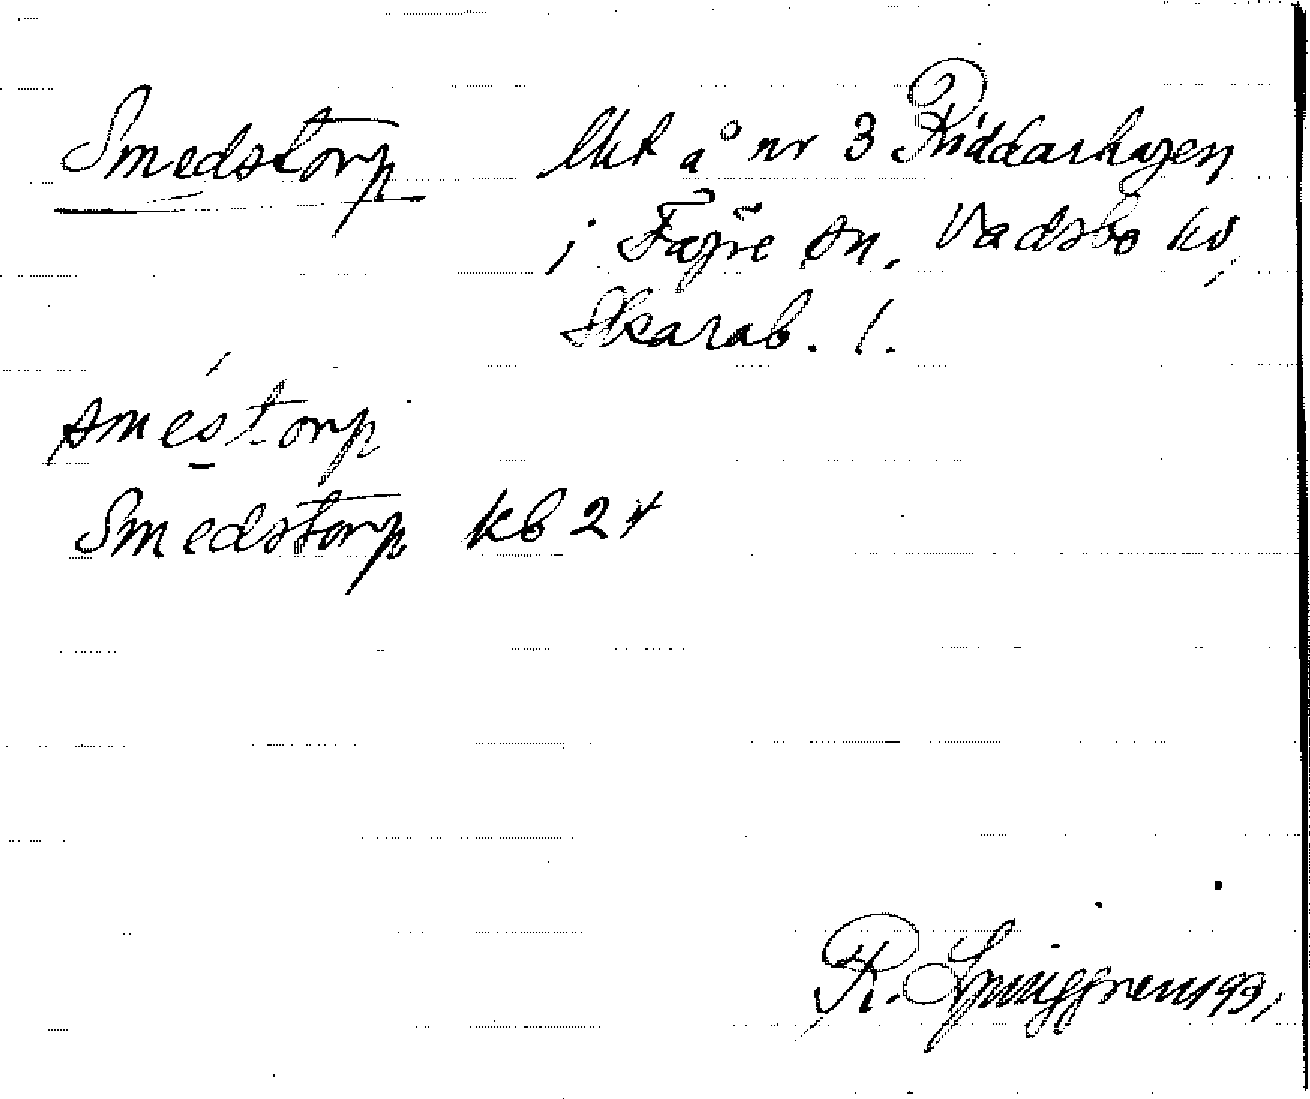 Smedstorp lht å nr 3 Riddarhagen
i Fägre sn, Vadsbo hd,
Skarab. l.
sméstorp
Smedstorp kb 24
R.